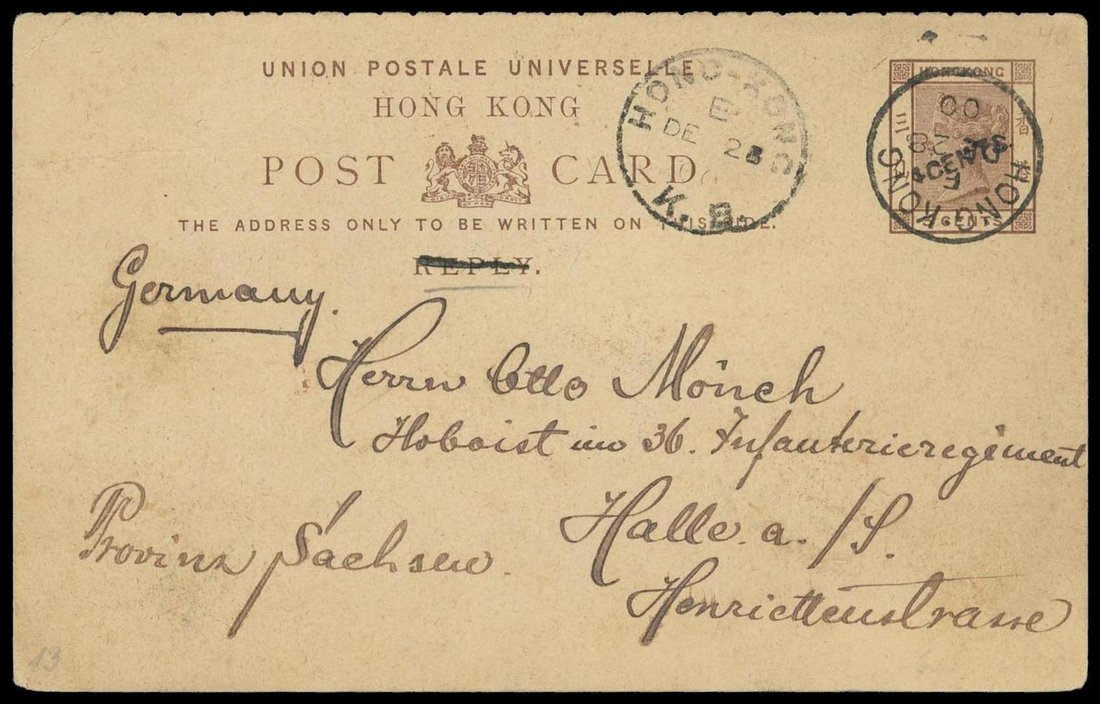 UNION POSTALE UNIVERSELLE
HONG KONG
POST CARD
THE ADDRESS ONLY TO BE WRITTEN ON THIS SIDE.
REPLY.
HONG-KONG
E
DE 28
00
K. B.
HONGKONG
4 CENTS
CENTS
HONG KONG
E
28
00
Germany.
Herrn Otto Mönch
Hoboist im 36. Infanterieregiment
Halle. a./S.
Henriettenstrasse
Provinz Sachsen.
13